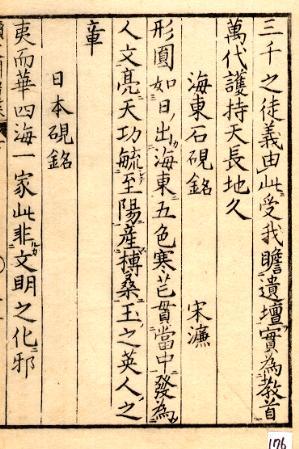 三千之徒義由此受我瞻遺壇實為教首
萬代護持天長地久
海東石硯銘 宋濂
形圓如日出海東五色寒芒貫當中發為
人文亮天功毓至陽産榑桑玉之英人之
章
日本硯銘
夷而華四海一家此非文明之化邪
176